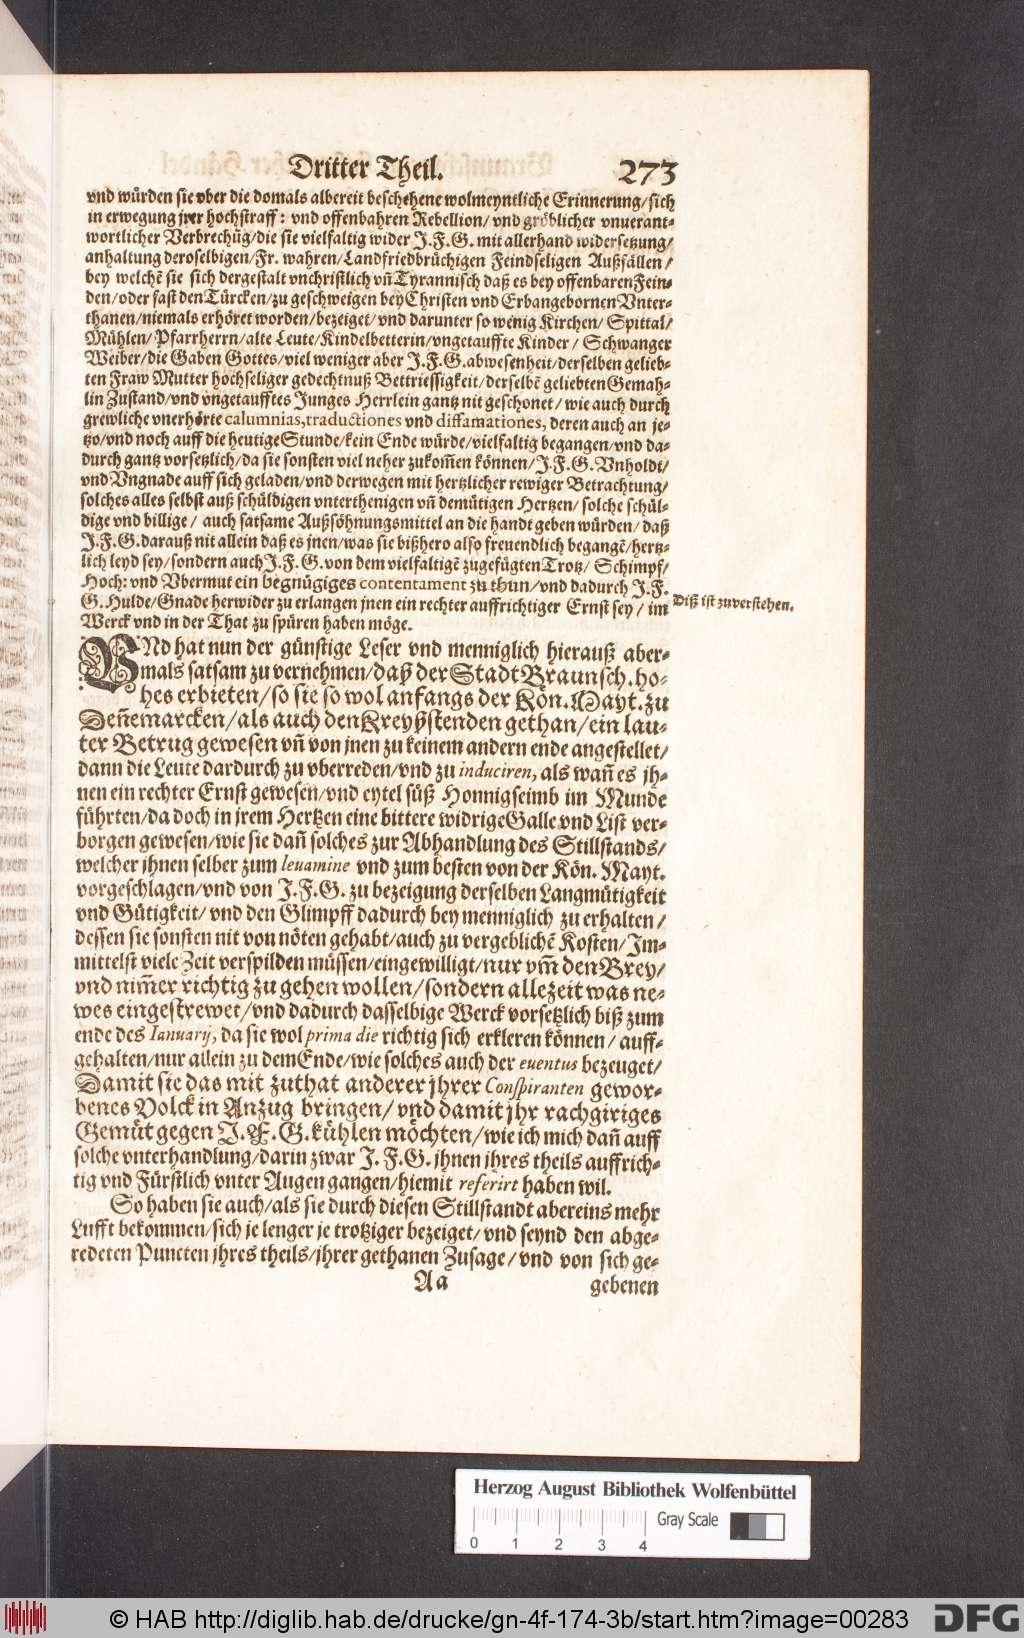 Dritter Theil. 273
vnd würden sie vber die domals albereit beschehene wolmeyntliche Erinnerung/sich
in erwegung jrer hochstraff: vnd offenbahren Rebellion/vnd gröblicher vnuerant-
wortlicher Verbrechũg/die sie vielfaltig wider J.F.G. mit allerhand widersetzung/
anhaltung deroselbigen/Fr. wahren/Landfriedbrüchigen Feindseligen Außfällen/
bey welchẽ sie sich dergestalt vnchristlich vñ Tyrannisch daß es bey offenbaren Fein-
den/oder fast den Türcken/zu geschweigen bey Christen vnd Erbangebornen Vnter-
thanen/niemals erhöret worden/bezeiget/vnd darunter so wenig Kirchen/Spittal/
Mühlen/Pfarrherrn/alte Leute/Kindelbetterin/vngetauffte Kinder/Schwanger
Weiber/die Gaben Gottes/viel weniger aber J.F.G. abwesenheit/derselben gelieb-
ten Fraw Mutter hochseliger gedechtnuß Bettriessigkeit/derselbẽ geliebten Gemah-
lin Zustand/vnd vngetaufftes Junges Herrlein gantz nit geschonet/wie auch durch
grewliche vnerhörte calumnias, traductiones vnd diffamationes, deren auch an je-
tzo/vnd noch auff die heutige Stunde/kein Ende würde/vielfaltig begangen/vnd da-
durch gantz vorsetzlich/da sie sonsten viel neher zukom̃en können/J.F.G. Vnholdt/
vnd Vngnade auff sich geladen/vnd derwegen mit hertzlicher rewiger Betrachtung/
solches alles selbst auß schüldigen vnterthenigen vñ demütigen Hertzen/solche schül-
dige vnd billige/auch satsame Außsöhnungsmittel an die handt geben würden/daß
J.F.G. darauß nit allein daß es jnen/was sie bißhero also freuendlich begangẽ/hertz-
lich leyd sey/sondern auch J.F.G. von dem vielfaltigẽ zugefügten Trotz/Schimpf/
Hoch: vnd Vbermut ein begnügiges contentament zu thun/vnd dadurch J.F.
G. Hulde/Gnade herwider zu erlangen jnen ein rechter auffrichtiger Ernst sey/im
Diß ist zuverstehen.
Werck vnd in der That zu spüren haben möge.
VNd hat nun der günstige Leser vnd menniglich hierauß aber-
mals satsam zu vernehmen/daß der Stadt Braunsch. ho-
hes erbieten/so sie so wol anfangs der Kön. Mayt. zu
Deñemarcken/als auch den Kreyßstenden gethan/ein lau-
ter Betrug gewesen vñ von jnen zu keinem andern ende angestellet/
dann die Leute dardurch zu vberreden/vnd zu induciren, als wañ es jh-
nen ein rechter Ernst gewesen/vnd eytel süß Honnigseimb im Munde
führten/da doch in jrem Hertzen eine bittere widrige Galle vnd List ver-
borgen gewesen/wie sie dañ solches zur Abhandlung des Stillstands/
welcher jhnen selber zum leuamine vnd zum besten von der Kön. Mayt.
vorgeschlagen/vnd von J.F.G. zu bezeigung derselben Langmütigkeit
vnd Gütigkeit/vnd den Glimpff dadurch bey menniglich zu erhalten/
dessen sie sonsten nit von nöten gehabt/auch zu vergeblichẽ Kosten/Im-
mittelst viele Zeit verspilden müssen/eingewilligt/nur vm̃ den Brey/
vnd nim̃er richtig zu gehen wollen/sondern allezeit was ne-
wes eingestrewet/vnd dadurch dasselbige Werck vorsetzlich biß zum
ende des Ianuarij, da sie wol prima die richtig sich erkleren können/auff-
gehalten/nur allein zu dem Ende/wie solches auch der euentus bezeuget/
Damit sie das mit zuthat anderer jhrer Conspiranten gewor-
benes Volck in Anzug bringen/vnd damit jhr rachgiriges
Gemüt gegen J.F.G. kühlen möchten/wie ich mich dañ auff
solche vnterhandlung/darin zwar J.F.G. jhnen jhres theils auffrich-
tig vnd Fürstlich vnter Augen gangen/hiemit referirt haben wil.
So haben sie auch/als sie durch diesen Stillstandt abereins mehr
Lufft bekommen/sich je lenger je trotziger bezeiget/vnd seynd den abge-
redeten Puncten jhres theils/jhrer gethanen Zusage/vnd von sich ge-
Aa gebenen
Herzog August Bibliothek Wolfenbüttel
Gray Scale
0 1 2 3 4
© HAB http://diglib.hab.de/drucke/gn-4f-174-3b/start.htm?image=00283 DFG